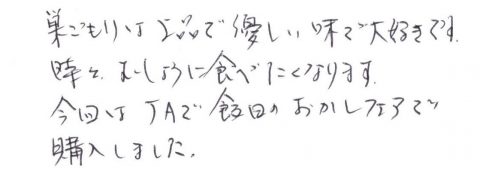 巣ごもりは上品で優しい味で大好きです.
時々むしょうに食べたくなります.
今回はJAで飯田のおかしフェアで
購入しました.